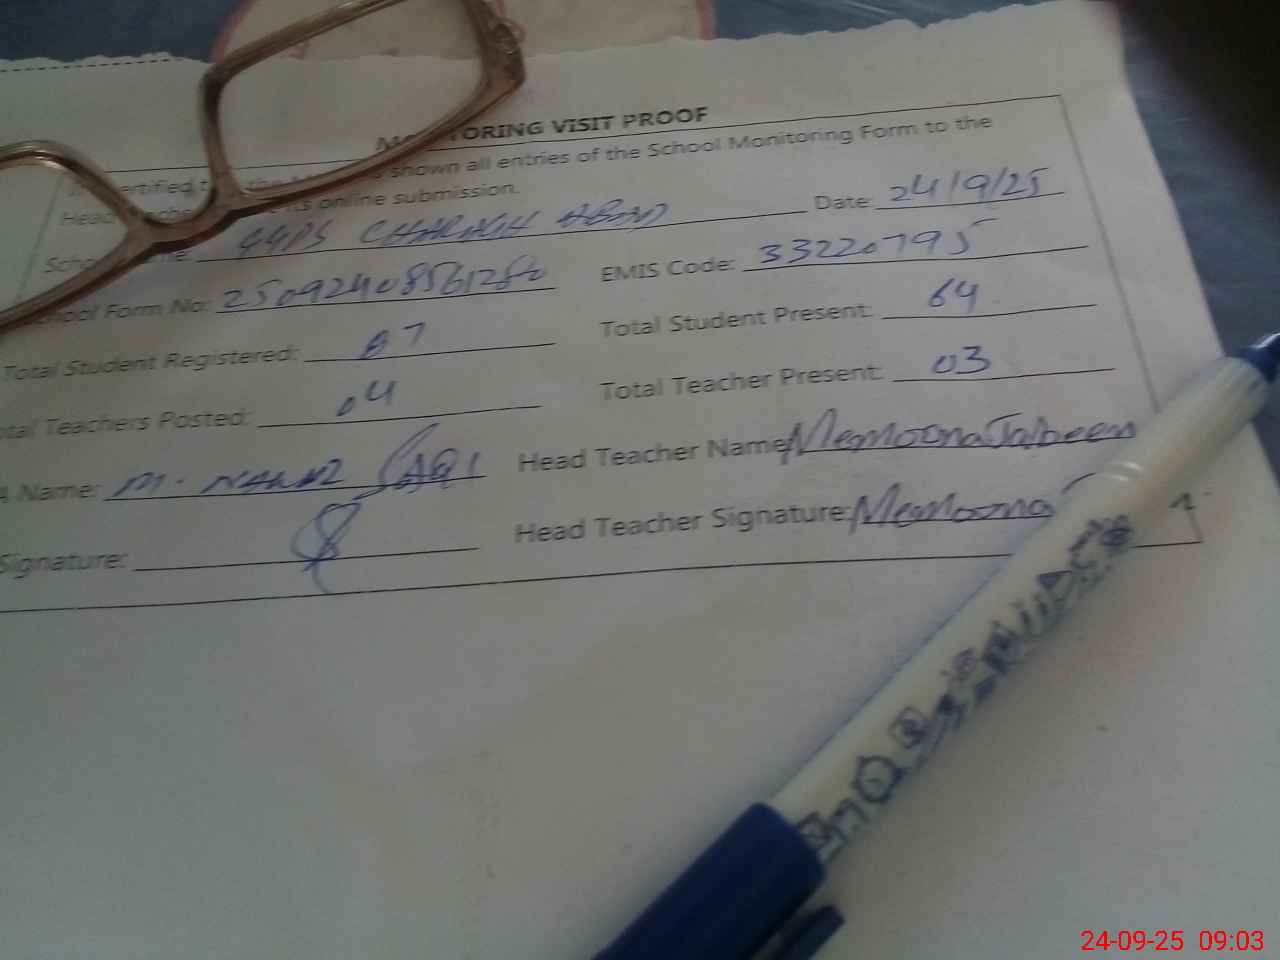 MONITORING VISIT PROOF
shown all entries of the School Monitoring Form to the
online submission.
GGPS CHARAGH ABAD Date: 24/9/25
School Form No: 250924085612 EMIS Code: 33220795
Total Student Registered: 87 Total Student Present: 64
Total Teachers Posted: 04 Total Teacher Present: 03
Name: M. Head Teacher Name: Memoona Jabeen
Signature: Head Teacher Signature: Memoona
24-09-25 09:03